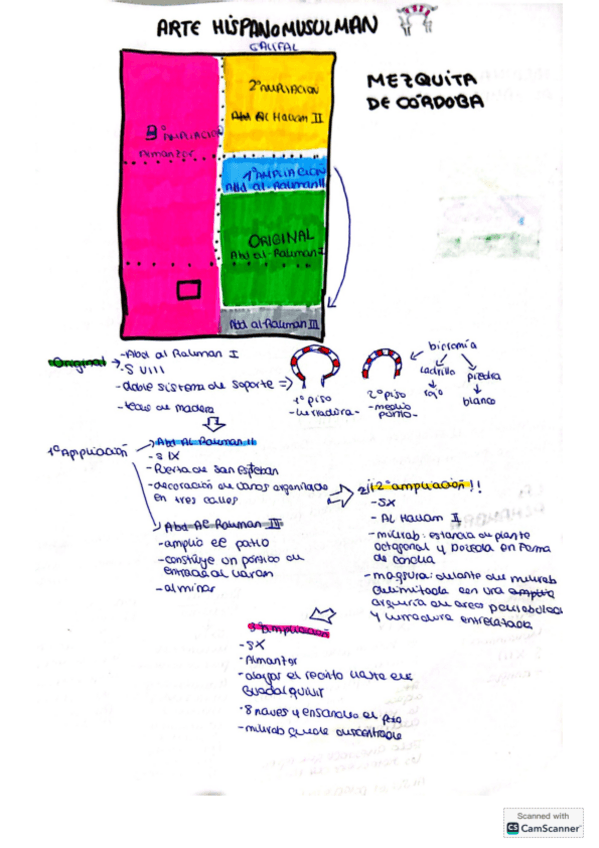 ARTE HISPANOMUSULMAN
CALIFAL
MEZQUITA
DE CÓRDOBA
2ªAMPLIACION
Abd Al Hakam II
3ª AMPLIACION
Almanzor
1ªAMPLIACION
Abd al-Rahman II
ORIGINAL
Abd al-Rahman I
Abd al-Rahman III
Original
-Abd al Rahman I
-S VIII
-doble sistema de soporte =>
-techo de madera
1º piso
-herradura-
2º piso
-medio
punto-
bicromía
ladrillo
rojo
piedra
blanco
1ª Ampliación
Abd Al Rahman II
-S IX
-Puerta de San Esteban
-decoración de vanos organizada
en tres calles
Abd Al Rahman III
-amplio el patio
-construye un pórtico de
entrada al haram
-alminar
¡¡2ª ampliación!!
-SX
-Al Hakam II
-mihrab: estancia de planta
octogonal y bóveda en forma
de concha
-maqsura: delante del mihrab
delimitada con una amplia
arquería de arcos polilobulados
y herradura entrelazada
3ª ampliación
-SX
-Almanzor
-alargar el recinto hasta el
Guadalquivir
-8 naves y ensancho el patio
-mihrab queda descentrado
Scanned with
CS CamScanner